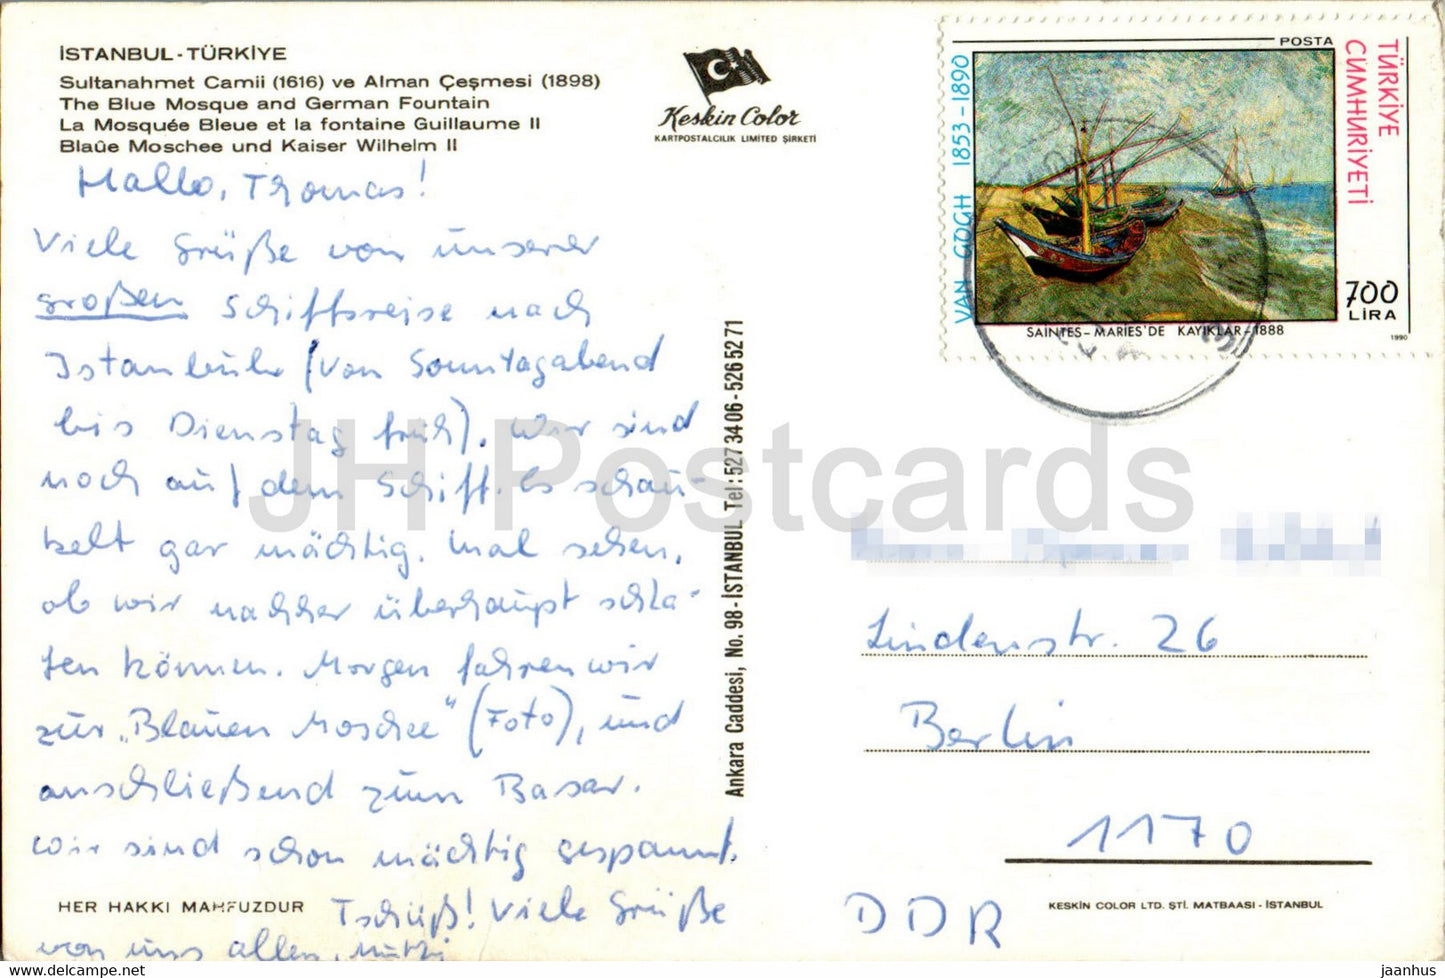 İSTANBUL - TÜRKİYE
Sultanahmet Camii (1616) ve Alman Çeşmesi (1898)
The Blue Mosque and German Fountain
La Mosquée Bleue et la fontaine Guillaume II
Blaûe Moschee und Kaiser Wilhelm II
Keskin Color
KARTPOSTALCILIK LIMITED ŞİRKETİ
Hallo, Thomas!
Viele Grüße von unserer
großen Schiffsreise nach
Istanbul (von Sonntagabend
bis Dienstag früh). Wir sind
noch auf dem Schiff. Es schau-
kelt gar mächtig. Mal sehen,
ob wir nachher überhaupt schla-
fen können. Morgen fahren wir
zur „Blauen Moschee" (Foto), und
anschließend zum Basar.
Wir sind schon mächtig gespannt.
Tschüß! Viele Grüße
von uns allen,
HER HAKKI MAHFUZDUR
Ankara Caddesi, No. 98 - İSTANBUL Tel: 527 34 06 - 526 52 71
POSTA
TÜRKİYE
CUMHURİYETİ
VAN GOGH 1853-1890
700
LİRA
SAINTES-MARIES'DE KAYIKLAR-1888
1990
Lindenstr. 26
Berlin
1170
DDR
KESKİN COLOR LTD. ŞTİ. MATBAASI - İSTANBUL
JH Postcards
jaanhus.com